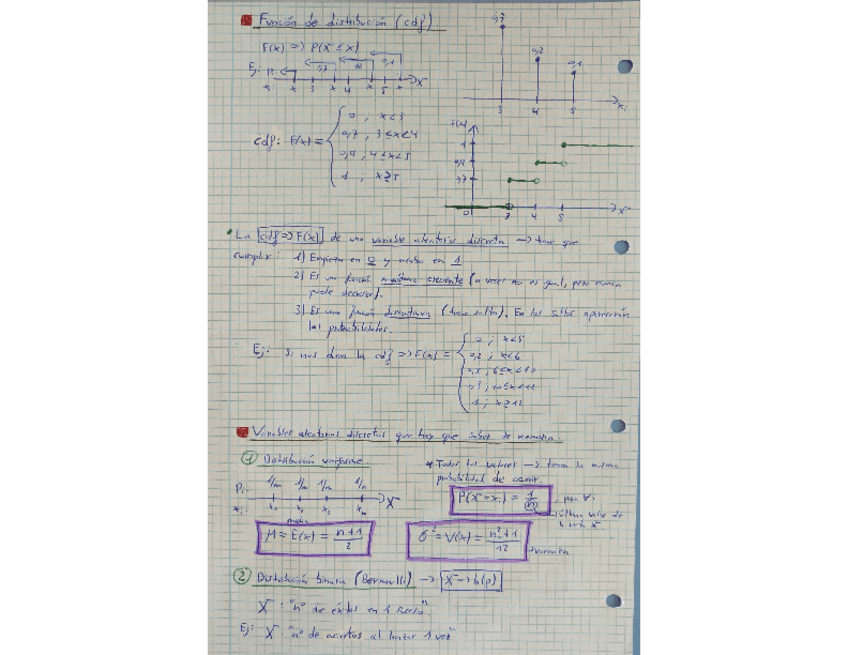 Función de distribución (cdf).
F(x) => P(X ≤ x)
0,7
0,2
0,1
3 4 5 xi
Ej: Pi
xi 3 4 5 X
cdf: F(x) =
0 ; x<3
0,7 ; 3≤x<4
0,9 ; 4≤x<5
1 ; x≥5
F(x)
1
0,9
0,7
0 3 4 5 X
La cdf => F(x) de una variable aleatoria discreta → tiene que
cumplir: 1) Empieza en 0 y acaba en 1
2) Es una función monótona creciente (a veces es igual, pero nunca
puede decrecer).
3) Es una función (tiene saltos). En los saltos aparecen
las probabilidades.
Ej: Si nos dan la cdf => F(x) =
0 ; x<5
x<6
1 ; x≥12
Variables aleatorias discretas que hay que saber de memoria.
1 Distribución uniforme
* Todos los valores → tienen la misma
probabilidad de ocurrir.
Pi 1/n 1/n 1/n 1/n
xi X
P(X=xi) = 1/n para ∀i
último valor de
media
μ = E(x) = n+1/2
σ² = V(x) = n²+1/12
varianza
2 Distribución binaria (Bernoulli) → X→b(p)
X: "nº de éxitos en 1
Ej: X "nº de aciertos al lanzar 1 vez"